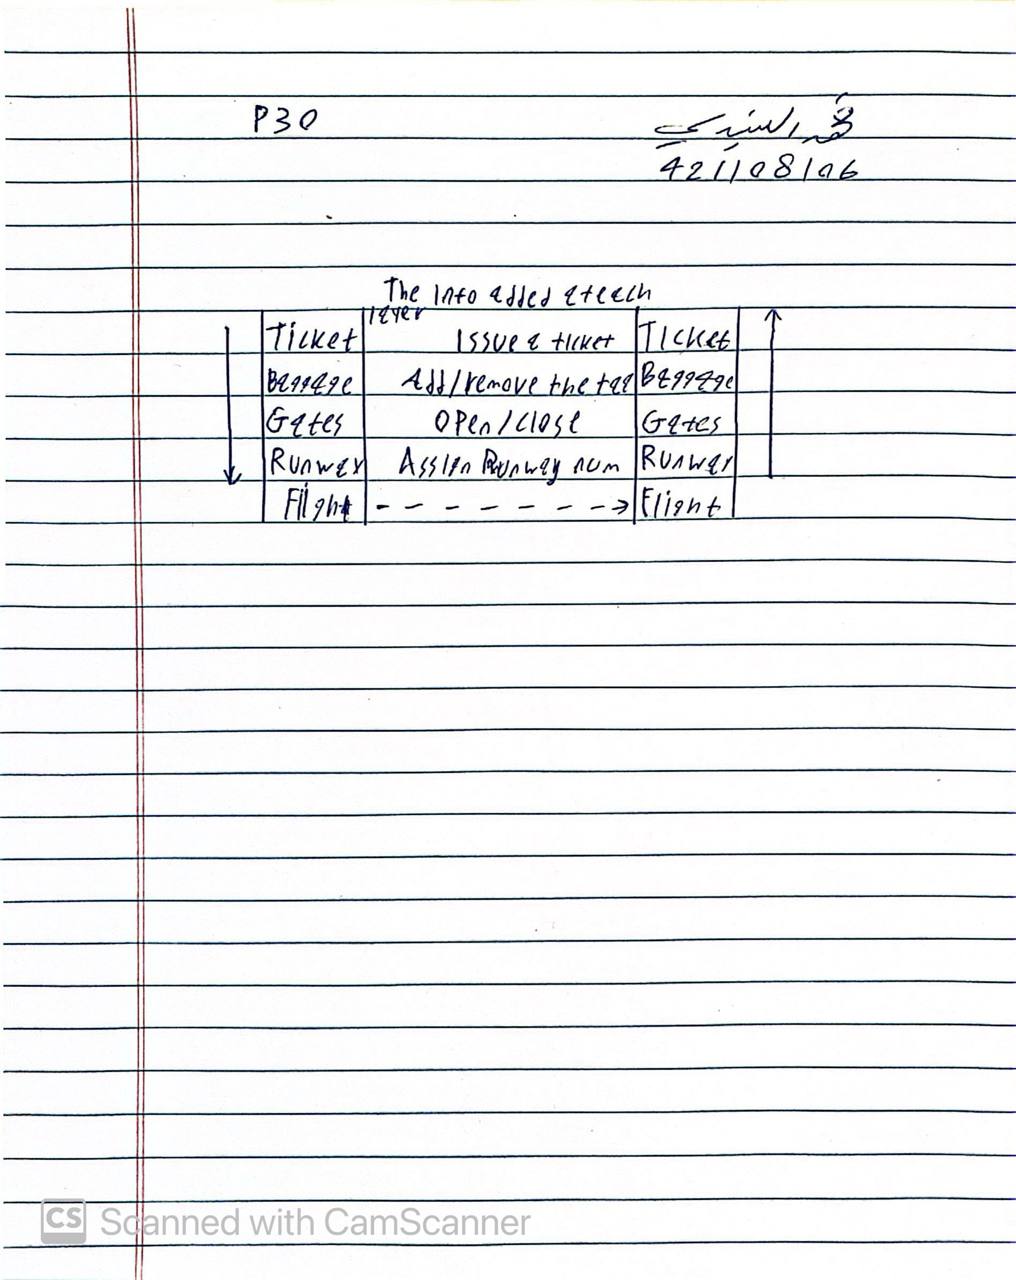 P30
421108106
The Info added at each
layer
Ticket Issue a ticket Ticket
Baggage Add/remove the tag Baggage
Gates Open/close Gates
Runway Assign Runway num Runway
Flight - - - - - - -> Flight
CS Scanned with CamScanner